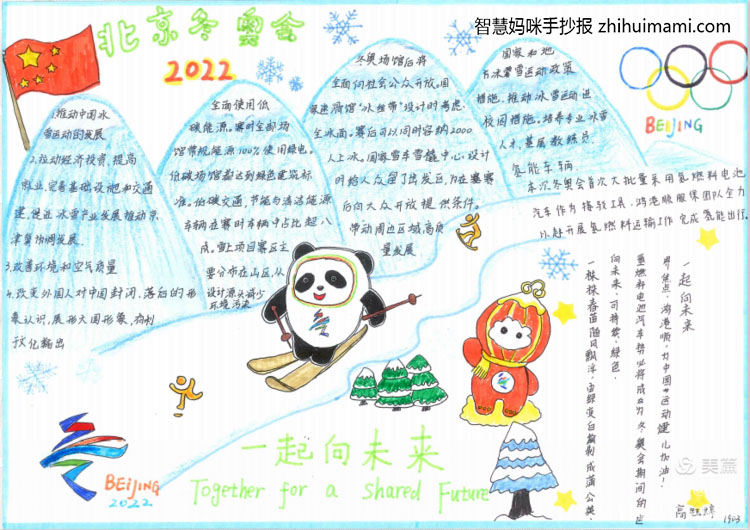 智慧妈咪手抄报 zhihuimami.com
北京冬奥会
2022
1.推动中国冰
雪运动的发展
2.拉动经济投资,提高
就业,完善基础设施和交通
建,促进冰雪产业发展推动京
津冀协调发展
3.改善环境和空气质量
4.改变外国人对中国封闭,落后的形
象认识,展形大国形象,有利
于文化输出
全面使用低
碳能源。赛时全部场
馆常规能源100%使用绿电。
低碳场馆都达到绿色建筑标
准。低碳交通,节能与清洁能源
车辆在赛时车辆中占比超八
成,雪上项目赛区主
要分布在山区,从
设计源头减少
环境污染
冬奥场馆后将
全面向社会公众开放。国
家速滑馆“冰丝带”设计时考虑
全冰面,赛后可以同时容纳2000
人上冰。国家雪车雪橇中心设计
时给大众留了出发区,为在赛
后向大众开放提供条件。
带动周边区域高质
量发展
国家和地
方冰雪运动政策
措施,推动冰雪运动进
校园措施。培养专业冰雪
人才,基层教练员
氢能车辆
本次冬奥会首次大批量采用氢燃料电池
汽车作为接驳工具,鸿港顺服保团队全力
以赴开展氢燃料运输工作完成氢能出行。
BEiJING
一起向未来
界焦点,鸿港顺,为中国运动健儿加油!
氢燃料电池汽车势必将成为冬奥会期间的
向未来,可持续,绿色,
一株株春苗随风飘浮,由绿变白
BEiJING
2022
一起向未来
Together for a shared Future
美篇
1903